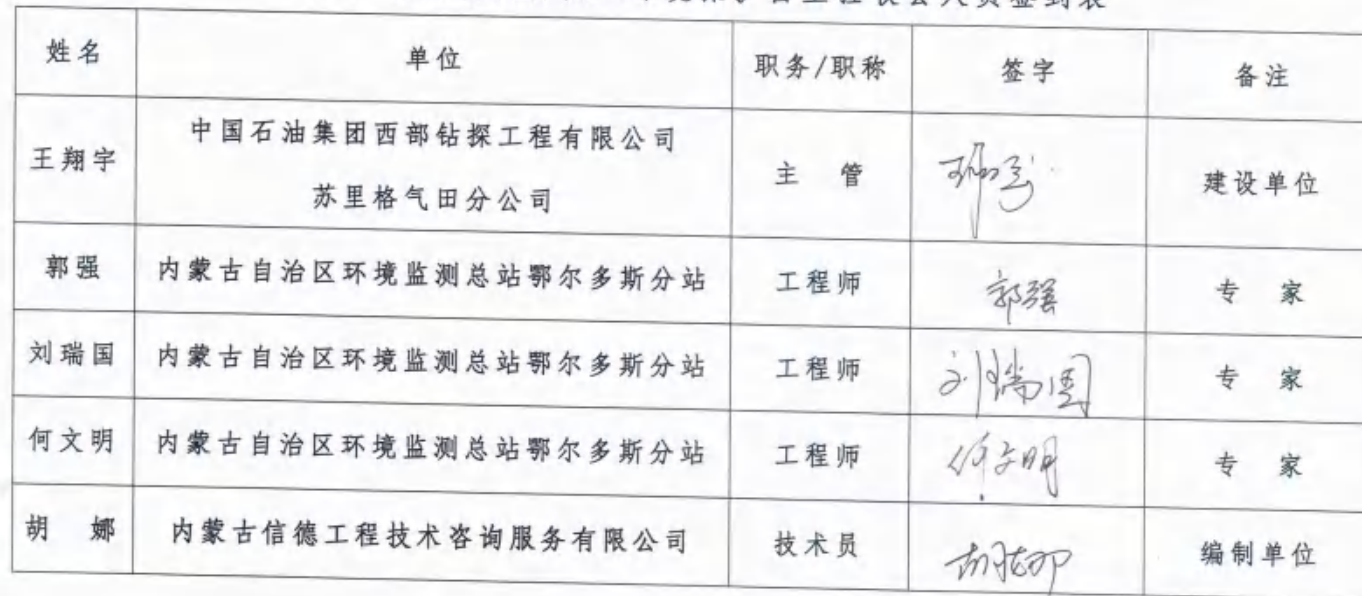 会人员签到表
姓名 单位 职务/职称 签字 备注
王翔宇 中国石油集团西部钻探工程有限公司 苏里格气田分公司 主 管 建设单位
郭强 内蒙古自治区环境监测总站鄂尔多斯分站 工程师 郭强 专 家
刘瑞国 内蒙古自治区环境监测总站鄂尔多斯分站 工程师 刘瑞国 专 家
何文明 内蒙古自治区环境监测总站鄂尔多斯分站 工程师 何文明 专 家
胡 娜 内蒙古信德工程技术咨询服务有限公司 技术员 胡娜 编制单位